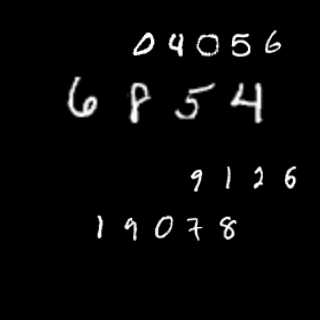 04056
6854
9126
19078